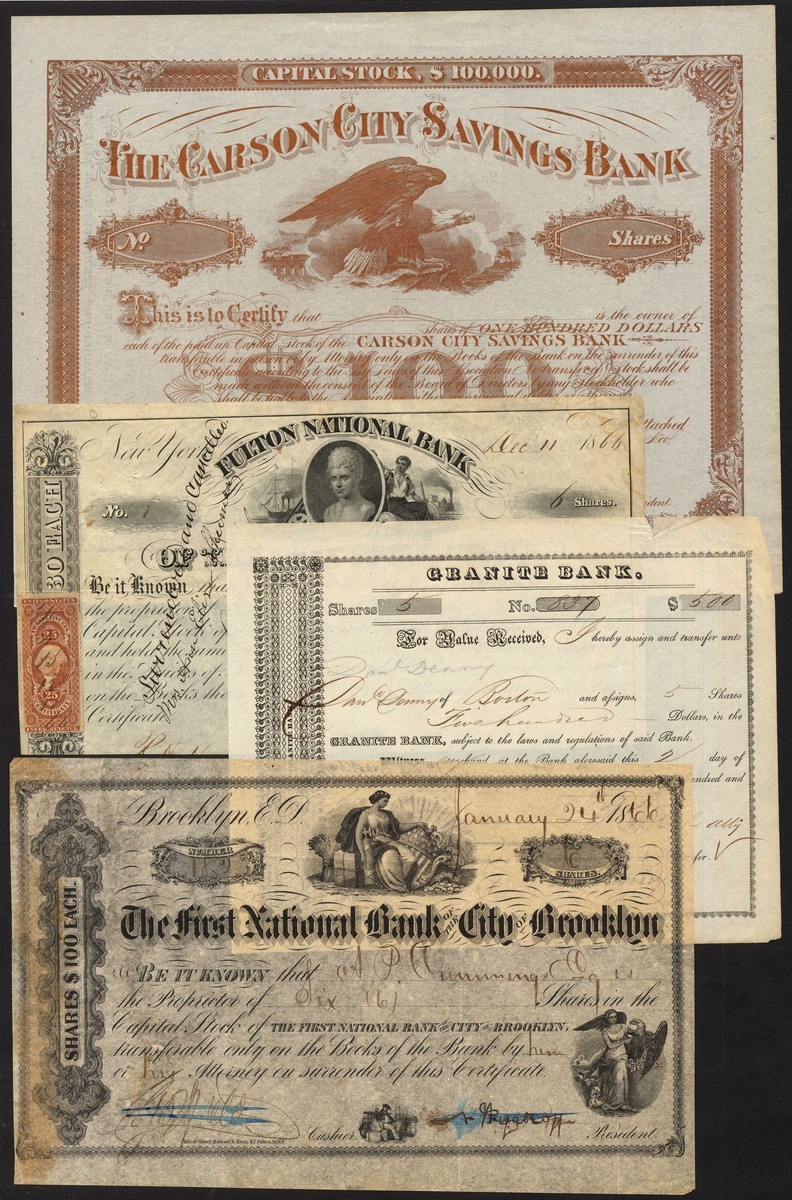 CAPITAL STOCK, $100,000.
THE CARSON CITY SAVINGS BANK
No Shares
This is to Certify that is the owner of
shares of ONE HUNDRED DOLLARS
each of the paid up Capital Stock of the CARSON CITY SAVINGS BANK
transferable in person or by Attorney only on the Books of the Bank on the surrender of this
Certificate according to the By-Laws of this Association. No transfer of Stock shall be
made without the consent of the Board of Directors by any Stockholder who
$100
ttached
ident.
New York Dec 11 1866
FULTON NATIONAL BANK
No. 6 Shares.
30 EACH
OF
Be it Known
the proprietor
Capital Stock of
and hold the same
in the
on the Books the
Certificate
Surrendered and Cancelled
25
25
GRANITE BANK.
Shares 5 No. 837 $ 500
For Value Received, I hereby assign and transfer unto
Danl Denny
Danl Denny of Boston and assigns, 5 Shares
Five hundred Dollars, in the
GRANITE BANK, subject to the laws and regulations of said Bank.
Witness my hand at the Bank aforesaid this 2 day of
undred and
atty
for.
Brooklyn, E.D. January 24th 1866
NUMBER
6
SHARES
SHARES $100 EACH.
The First National Bank OF THE City OF Brooklyn
BE IT KNOWN that A P Cummings Esq is
the Proprietor of Six (6) Shares in the
Capital Stock of THE FIRST NATIONAL BANK OF THE CITY OF BROOKLYN,
transferable only on the Books of the Bank by him
or his Attorney on surrender of this Certificate.
Cashier. President.